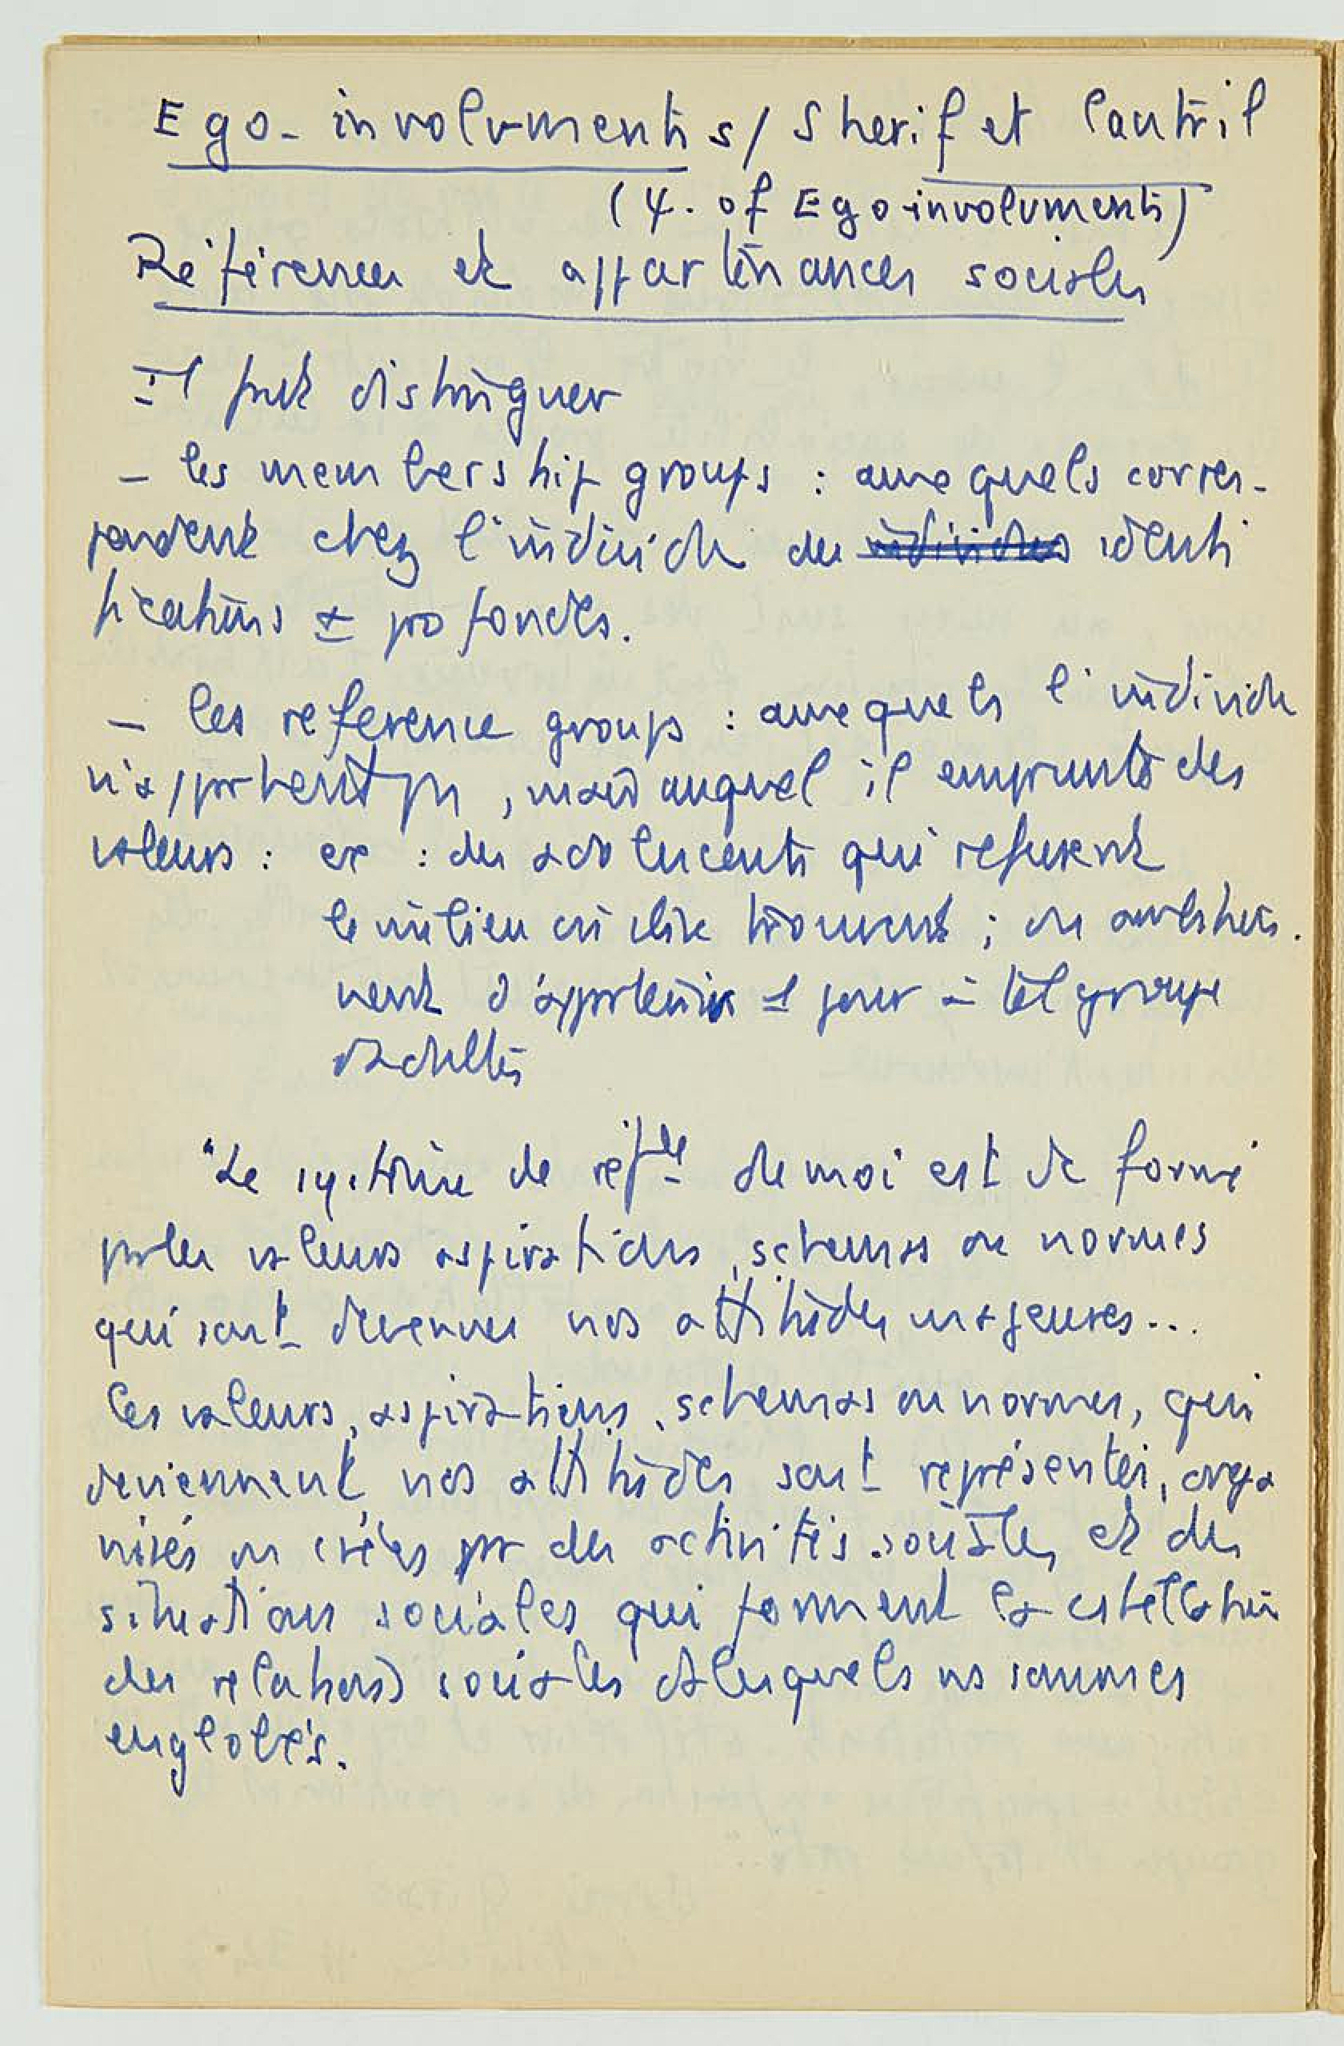 Ego-involvments / Sherif et Cantril
(Ψ. of Ego-involvments)
Référence et appartenances sociales
Il faut distinguer
- les membership groups : auxquels corres-
pondent chez l'individu des identi
fications ± profondes.
- les reference groups : auxquels l'individu
n'appartient pas, mais auquel il emprunte des
valeurs : ex : des adolescents qui refusent
le milieu où ils se trouvent ; ou ambition.
nent d'appartenir 1 jour à tel groupe
d'adultes
"Le système de réfce du moi est de formé
par les valeurs aspirations, schemas ou normes
qui sont devenues nos attitudes majeures...
Les valeurs, aspirations, schemas ou normes, qui
deviennent nos attitudes sont représentés, orga
nisés ou créés par des activités sociales et des
situations sociales qui forment la cstellation
des relations sociales ds lesquels ns sommes
englobés.